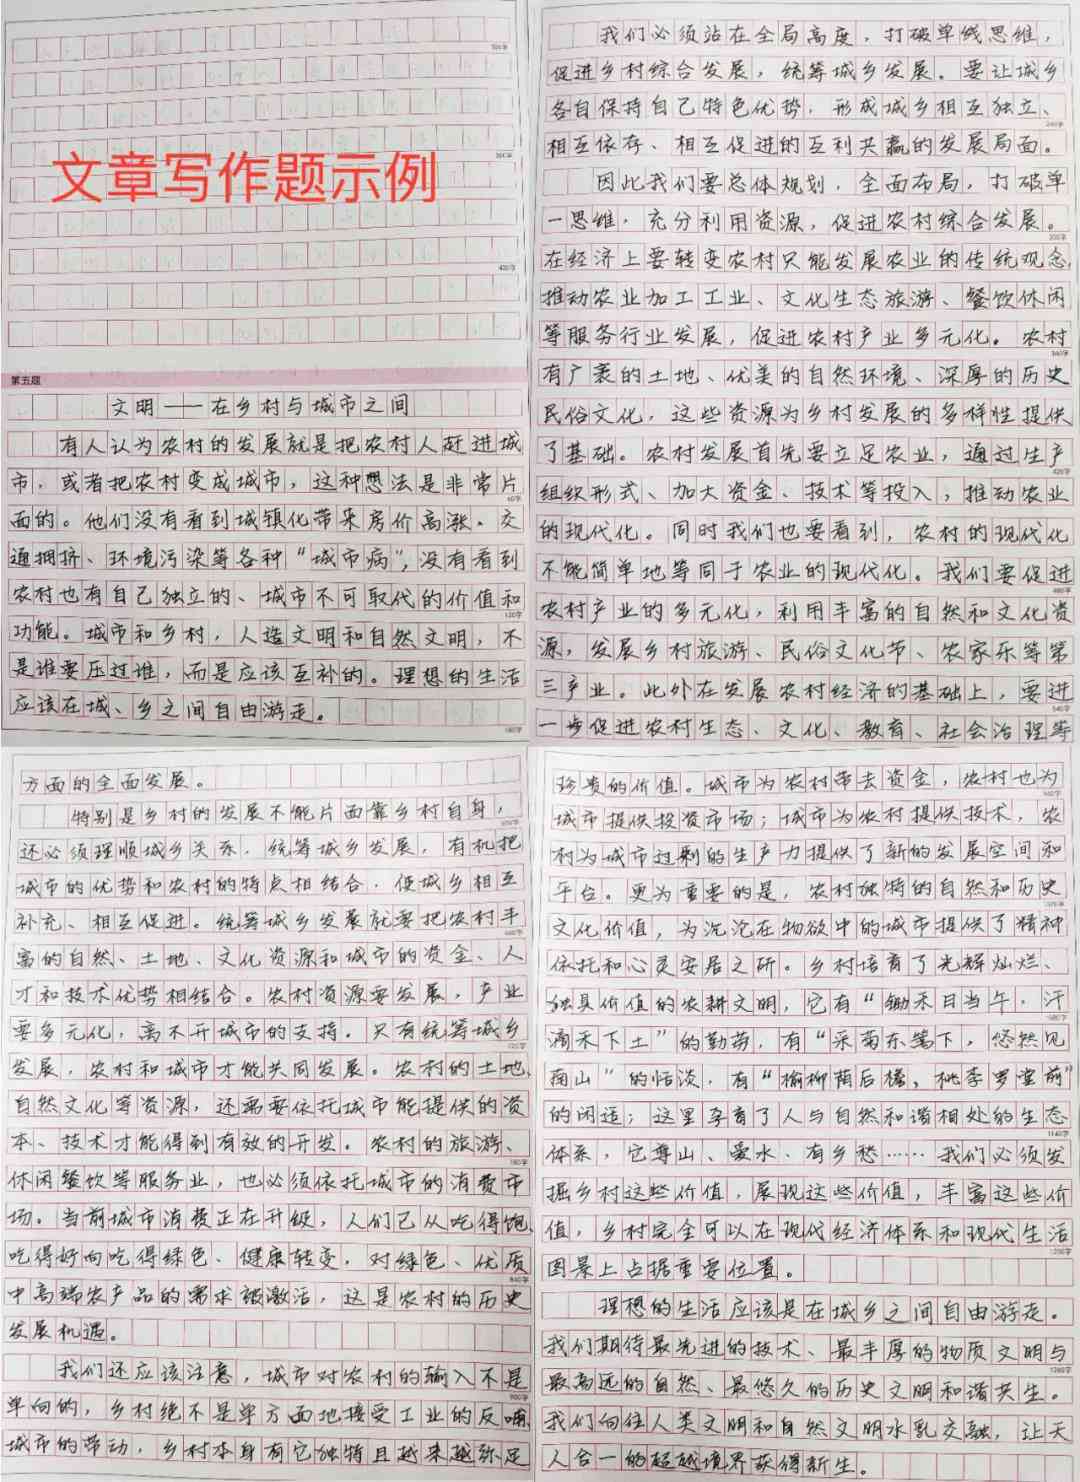 300字
文章写作题示例
360字
420字
第五题
文明——在乡村与城市之间
有人认为农村的发展就是把农村人赶进城
市,或者把农村变成城市,这种想法是非常片
60字
面的。他们没有看到城镇化带来房价高涨、交
通拥挤、环境污染等各种“城市病”,没有看到
农村也有自己独立的、城市不可取代的价值和
120字
功能。城市和乡村,人造文明和自然文明,不
是谁要压过谁,而是应该互补的。理想的生活
应该在城、乡之间自由游走。
180字
我们必须站在全局高度,打破单线思维,
促进乡村综合发展,统筹城乡发展。要让城乡
各自保持自己特色优势,形成城乡相互独立、
240字
相互依存、相互促进的互利共赢的发展局面。
因此我们要总体规划,全面布局,打破单
一思维,充分利用资源,促进农村综合发展。
300字
在经济上要转变农村只能发展农业的传统观念,
推动农业加工工业、文化生态旅游、餐饮休闲
等服务行业发展,促进农村产业多元化。农村
360字
有广袤的土地、优美的自然环境、深厚的历史
民俗文化,这些资源为乡村发展的多样性提供
了基础。农村发展首先要立足农业,通过生产
420字
组织形式、加大资金、技术等投入,推动农业
的现代化。同时我们也要看到,农村的现代化
不能简单地等同于农业的现代化。我们要促进
480字
农村产业的多元化,利用丰富的自然和文化资
源,发展乡村旅游、民俗文化节、农家乐等第
三产业。此外在发展农村经济的基础上,要进
540字
一步促进农村生态、文化、教育、社会治理等
方面的全面发展。
特别是乡村的发展不能片面靠乡村自身,
还必须理顺城乡关系,统筹城乡发展,有机把
城市的优势和农村的特点相结合,使城乡相互
补充、相互促进。统筹城乡发展就要把农村丰
660字
富的自然、土地、文化资源和城市的资金、人
才和技术优势相结合。农村资源要发展,产业
要多元化,离不开城市的支持。只有统筹城乡
720字
发展,农村和城市才能共同发展。农村的土地、
自然文化等资源,还需要依托城市能提供的资
本、技术才能得到有效的开发。农村的旅游、
780字
休闲餐饮等服务业,也必须依托城市的消费市
场。当前城市消费正在升级,人们已从吃得饱,
吃得好向吃得绿色、健康转变,对绿色、优质
840字
中高端农产品的需求被激活,这是农村的历史
发展机遇。
我们还应该注意,城市对农村的输入不是
900字
单向的,乡村绝不是单方面地接受工业的反哺,
城市的带动,乡村本身有它独特且越来越弥足
珍贵的价值。城市为农村带去资金,农村也为
960字
城市提供投资市场;城市为农村提供技术,农
村为城市过剩的生产力提供了新的发展空间和
平台。更为重要的是,农村独特的自然和历史
1020字
文化价值,为沉沦在物欲中的城市提供了精神
依托和心灵安居之所。乡村培育了光辉灿烂、
独具价值的农耕文明,它有“锄禾日当午,汗
1080字
滴禾下土”的勤劳,有“采菊东篱下,悠然见
南山”的恬淡,有“榆柳荫后檐,桃李罗堂前”
的闲适;这里孕育了人与自然和谐相处的生态
1140字
体系,它尊山、爱水、有乡愁……我们必须发
掘乡村这些价值,展现这些价值,丰富这些价
值,乡村完全可以在现代经济体系和现代生活
1200字
图景上占据重要位置。
理想的生活应该是在城乡之间自由游走。
我们期待最先进的技术、最丰厚的物质文明与
1260字
最高远的自然、最悠久的历史文明和谐共生。
我们向往人类文明和自然文明水乳交融,让天
人合一的超越境界获得新生。